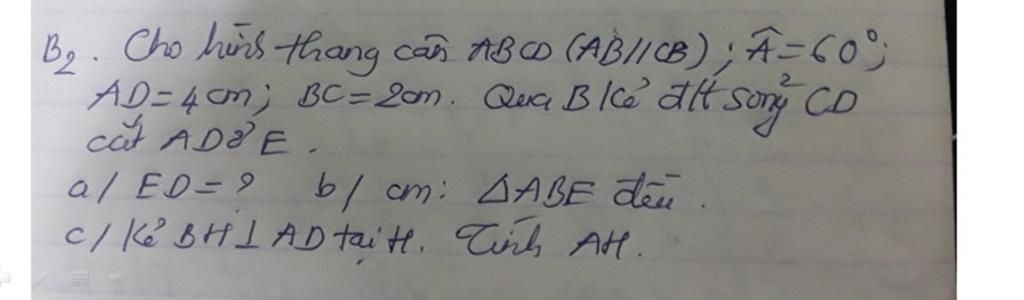 B2. Cho hình thang cân ABCD (AB//CB); Â=60°;
AD=4cm; BC=2cm. Qua B kẻ đ/t song² CD
cắt AD ở E.
a/ ED=? b/ cm: ΔABE đều.
c/ kẻ BH⊥AD tại H. Tính AH.